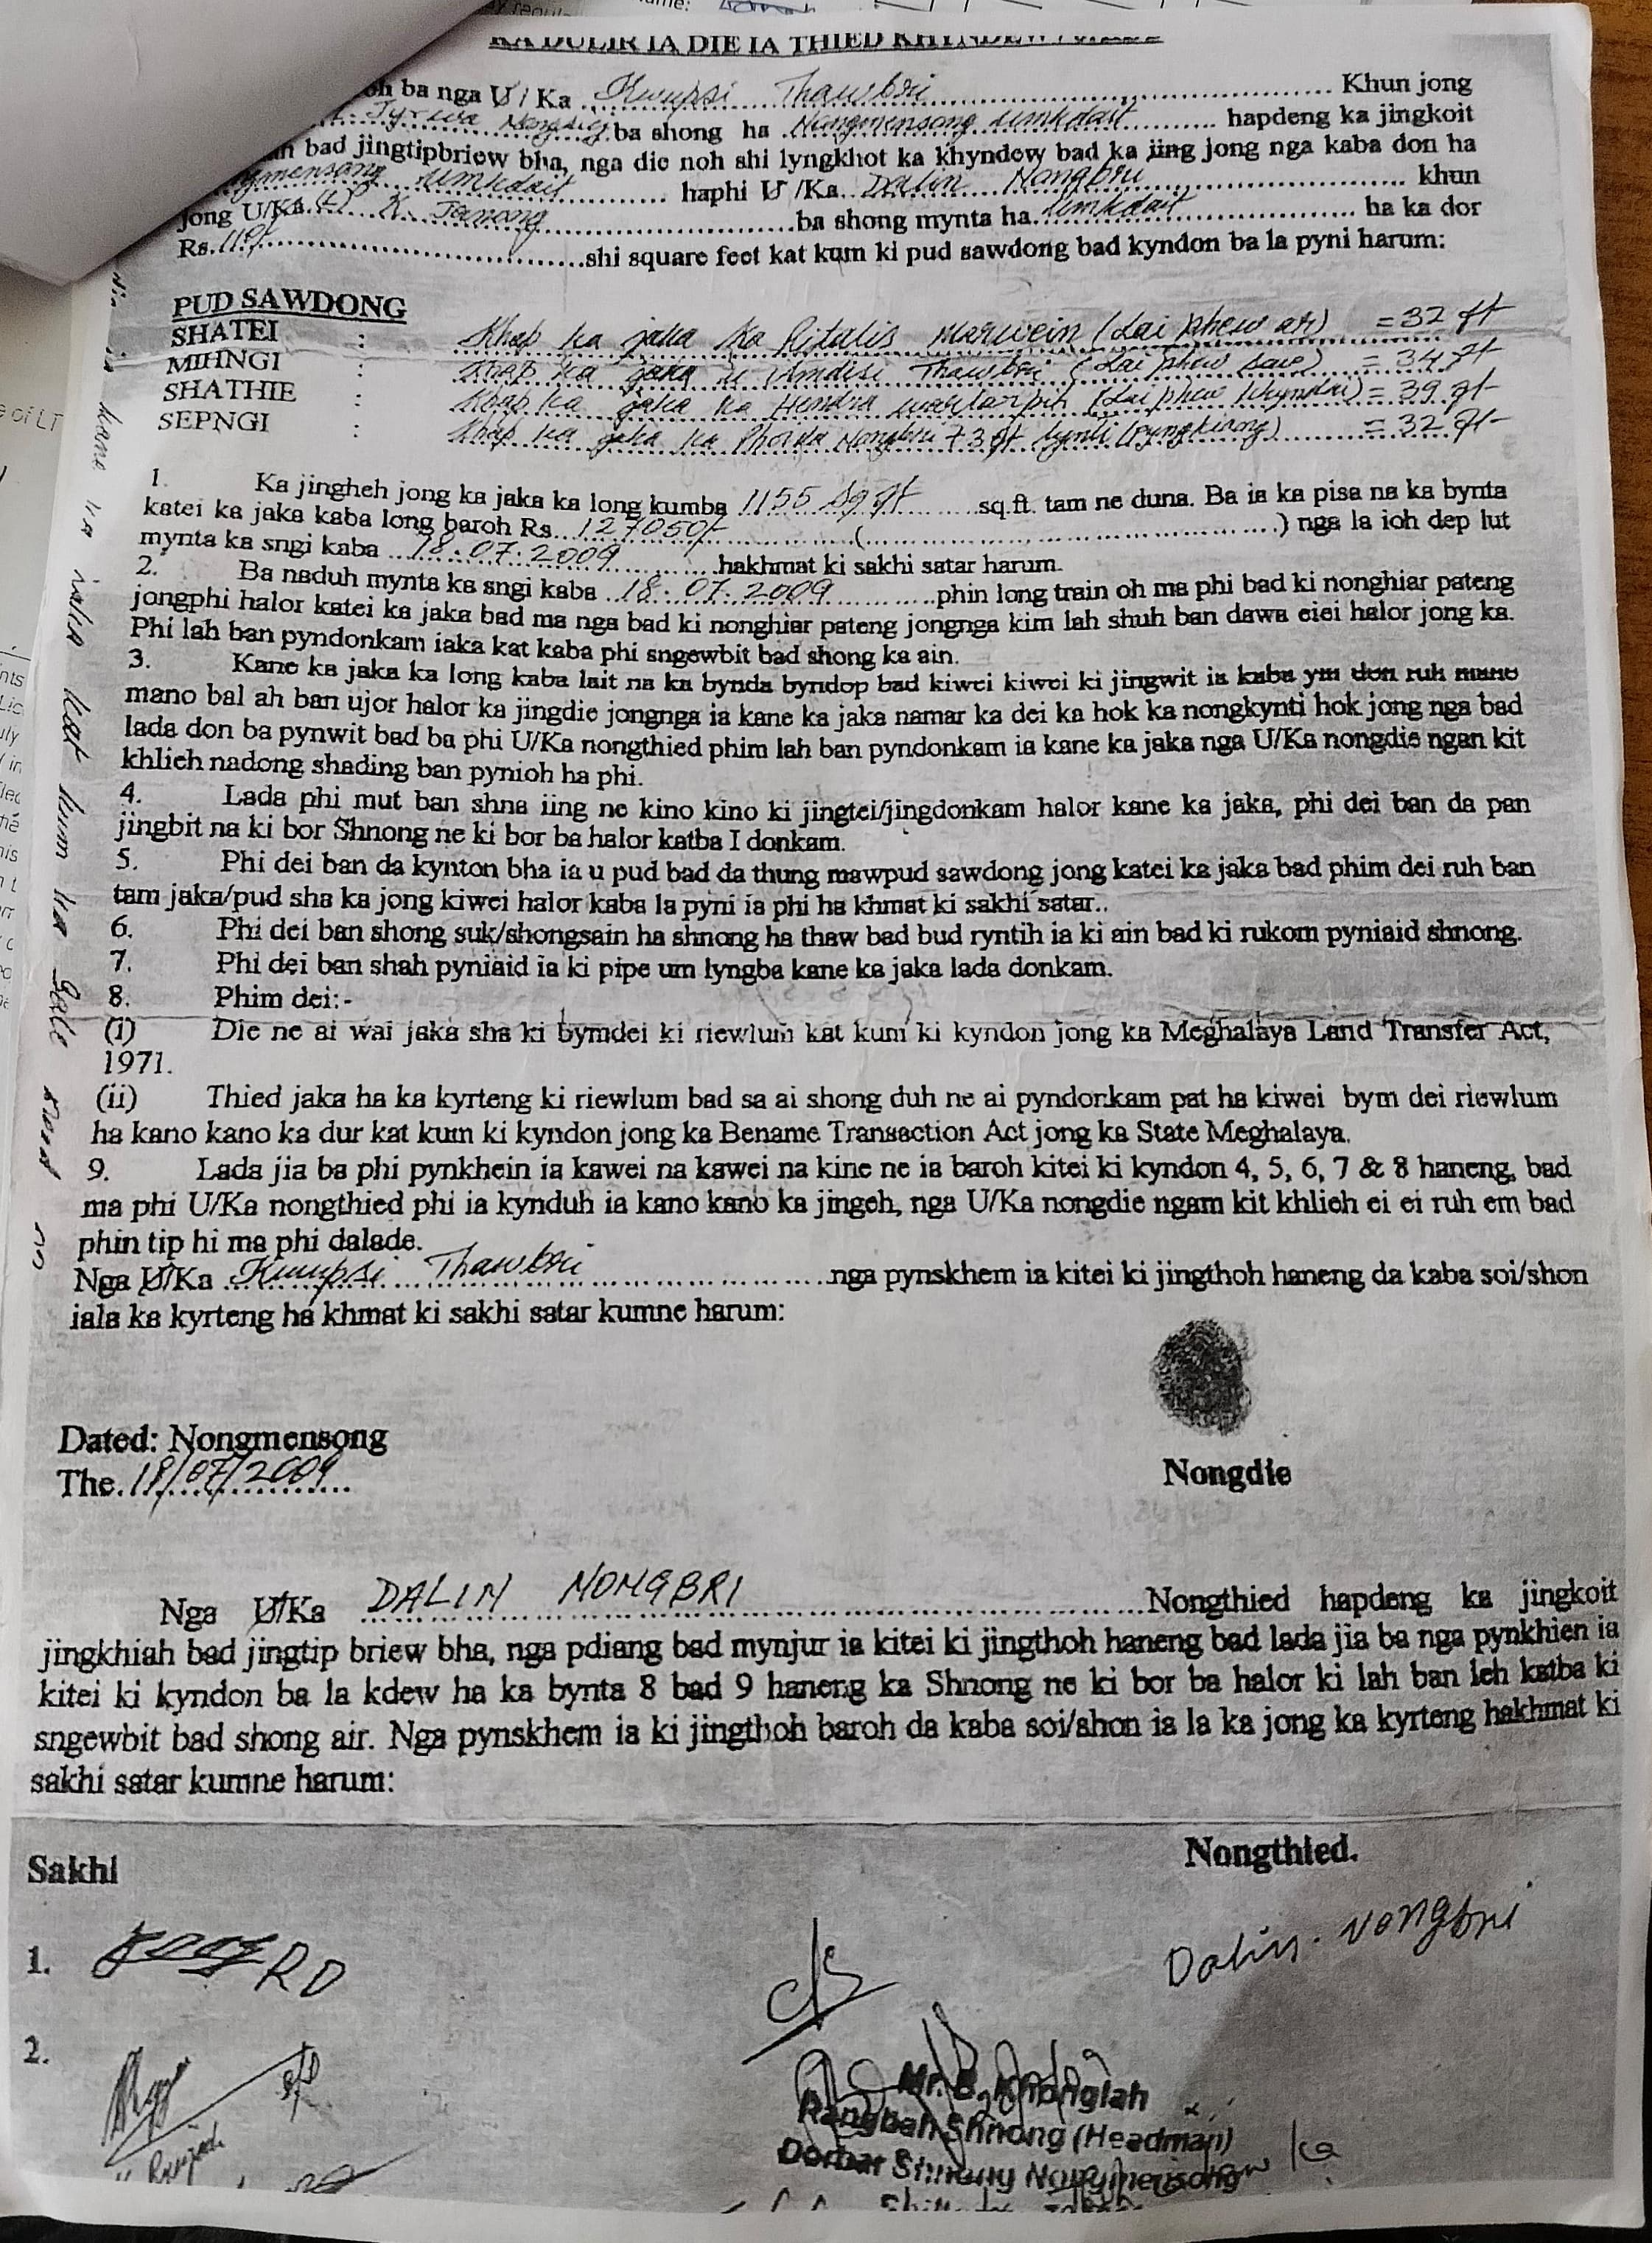 KA DULIR IA DIE IA THIED KHYNDEW
oh ba nga U / Ka Kwupsi Thawbri Khun jong
ba shong ha Nongmensong Umkdait hapdeng ka jingkoit
bad jingtipbriew bha, nga die noh shi lyngkhot ka khyndew bad ka iing jong nga kaba don ha
Umkdait haphi U /Ka Dalin Nongbri khun
jong U/Ka (L) K. ba shong mynta ha Umkdait ha ka dor
Rs. 110/- shi square feet kat kum ki pud sawdong bad kyndon ba la pyni harum:
PUD SAWDONG
SHATEI : Khap ka jaka ka Ritalis Marwein (Lai phew ar) = 32 ft
MIHNGI : Khap ka jaka u Thawbri (Lai phew saw) = 34 ft
SHATHIE : Khap ka jaka ka Hendra (Lai phew khyndai) = 39 ft
SEPNGI : Khap ka jaka ka Nongbri 73 ft lynti (pyngkiang) = 32 ft
1. Ka jingheh jong ka jaka ka long kumba 1155 Sq ft sq.ft. tam ne duna. Ba ia ka pisa na ka bynta
katei ka jaka kaba long baroh Rs. 127050/- ( ) nga la ioh dep lut
mynta ka sngi kaba 18.07.2009 hakhmat ki sakhi satar harum.
2. Ba naduh mynta ka sngi kaba 18.07.2009 phin long train oh ma phi bad ki nonghiar pateng
jongphi halor katei ka jaka bad ma nga bad ki nonghiar pateng jongnga kim lah shuh ban dawa eiei halor jong ka.
Phi lah ban pyndonkam iaka kat kaba phi sngewbit bad shong ka ain.
3. Kane ka jaka ka long kaba lait na ka bynda byndop bad kiwei kiwei ki jingwit ia kaba ym don ruh mano
mano bal ah ban ujor halor ka jingdie jongnga ia kane ka jaka namar ka dei ka hok ka nongkynti hok jong nga bad
lada don ba pynwit bad ba phi U/Ka nongthied phim lah ban pyndonkam ia kane ka jaka nga U/Ka nongdie ngan kit
khlieh nadong shading ban pynioh ha phi.
4. Lada phi mut ban shna iing ne kino kino ki jingtei/jingdonkam halor kane ka jaka, phi dei ban da pan
jingbit na ki bor Shnong ne ki bor ba halor katba I donkam.
5. Phi dei ban da kynton bha ia u pud bad da thung mawpud sawdong jong katei ka jaka bad phim dei ruh ban
tam jaka/pud sha ka jong kiwei halor kaba la pyni ia phi ha khmat ki sakhi satar..
6. Phi dei ban shong suk/shongsain ha shnong ha thaw bad bud ryntih ia ki ain bad ki rukom pyniaid shnong.
7. Phi dei ban shah pyniaid ia ki pipe um lyngba kane ka jaka lada donkam.
8. Phim dei:-
(i) Die ne ai wai jaka sha ki bymdei ki riewlum kat kum ki kyndon jong ka Meghalaya Land Transfer Act,
1971.
(ii) Thied jaka ha ka kyrteng ki riewlum bad sa ai shong duh ne ai pyndonkam pat ha kiwei bym dei riewlum
ha kano kano ka dur kat kum ki kyndon jong ka Bename Transaction Act jong ka State Meghalaya.
9. Lada jia ba phi pynkhein ia kawei na kawei na kine ne ia baroh kitei ki kyndon 4, 5, 6, 7 & 8 haneng, bad
ma phi U/Ka nongthied phi ia kynduh ia kano kano ka jingeh, nga U/Ka nongdie ngam kit khlieh ei ei ruh em bad
phin tip hi ma phi dalade.
Nga U/Ka Kwupsi Thawbri nga pynskhem ia kitei ki jingthoh haneng da kaba soi/shon
iala ka kyrteng ha khmat ki sakhi satar kumne harum:
Dated: Nongmensong
The. 18/07/2009
Nongdie
Nga U/Ka DALIN NONGBRI Nongthied hapdeng ka jingkoit
jingkhiah bad jingtip briew bha, nga pdiang bad mynjur ia kitei ki jingthoh haneng bad lada jia ba nga pynkhien ia
kitei ki kyndon ba la kdew ha ka bynta 8 bad 9 haneng ka Shnong ne ki bor ba halor ki lah ban leh katba ki
sngewbit bad shong air. Nga pynskhem ia ki jingthoh baroh da kaba soi/shon ia la ka jong ka kyrteng hakhmat ki
sakhi satar kumne harum:
Sakhi
Nongthied.
1. RD
Dalin. Nongbri
2.
Mr. B. Khonglah
Rangbah Shnong (Headman)
Dorbar Shnong Nongmensong